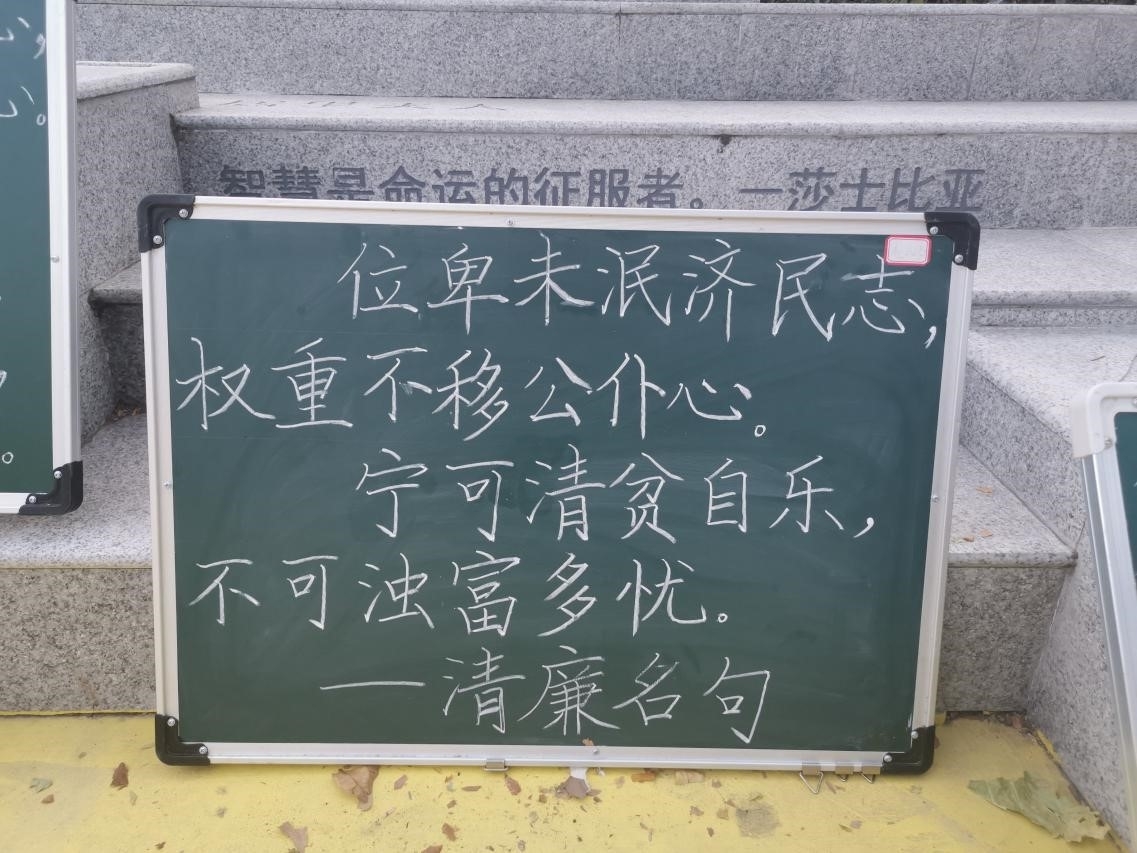 智慧是命运的征服者。 —莎士比亚
位卑未泯济民志,
权重不移公仆心。
宁可清贫自乐,
不可浊富多忧。
—清廉名句